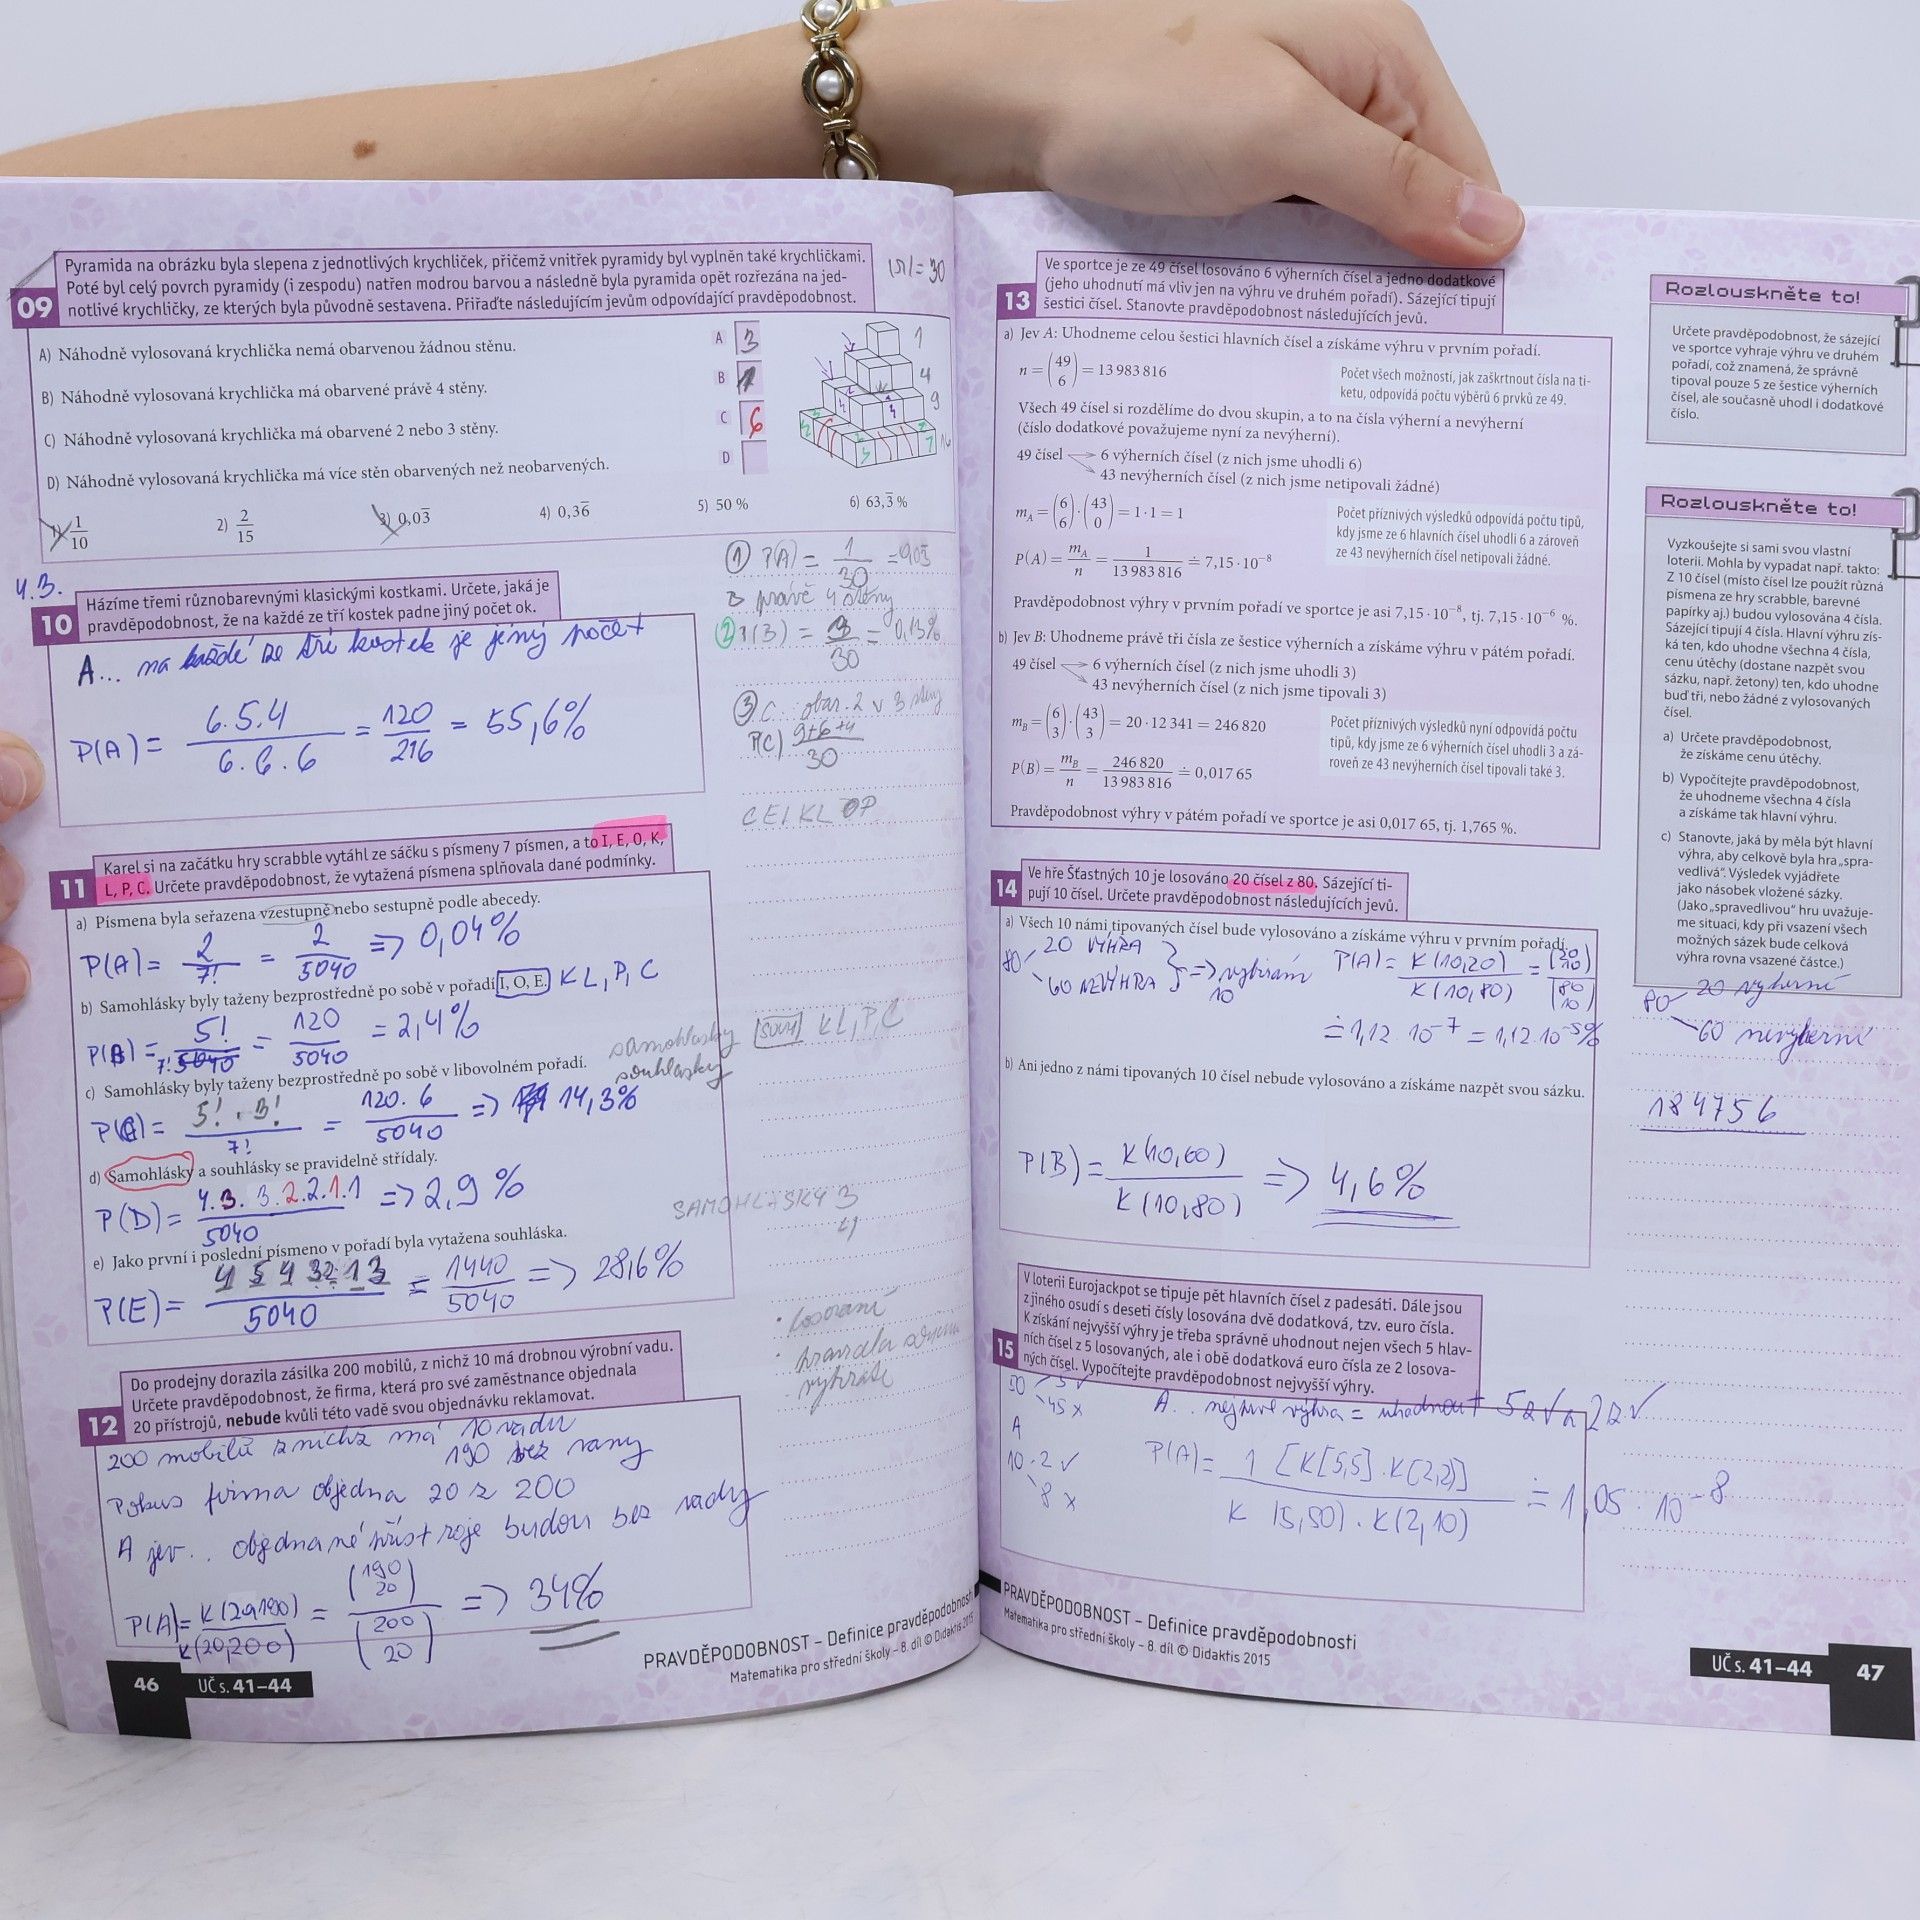 09
Pyramida na obrázku byla slepena z jednotlivých krychliček, přičemž vnitřek pyramidy byl vyplněn také krychličkami.
Poté byl celý povrch pyramidy (i zespodu) natřen modrou barvou a následně byla pyramida opět rozřezána na jed-
notlivé krychličky, ze kterých byla původně sestavena. Přiřaďte následujícím jevům odpovídající pravděpodobnost.
= 30
A) Náhodně vylosovaná krychlička nemá obarvenou žádnou stěnu.
A 3
B) Náhodně vylosovaná krychlička má obarvené právě 4 stěny.
B 1
C) Náhodně vylosovaná krychlička má obarvené 2 nebo 3 stěny.
C 6
D) Náhodně vylosovaná krychlička má více stěn obarvených než neobarvených.
D
1
4
9
1) 1/10 2) 2/15 3) 0,03̅ 4) 0,36̅ 5) 50 % 6) 63,3̅ %
① P(A) = 1/30 = 0,03̅
právě 4 stěny
② P(B) = 3/30 = 0,13%
③ C.. obar. 2 v 3 stěny
P(C) 9+6+4/30
CEIKLOP
4.3.
10
Házíme třemi různobarevnými klasickými kostkami. Určete, jaká je
pravděpodobnost, že na každé ze tří kostek padne jiný počet ok.
A... na každé ze tří kostek je jiný počet
P(A) = 6.5.4/6.6.6 = 120/216 = 55,6%
11
Karel si na začátku hry scrabble vytáhl ze sáčku s písmeny 7 písmen, a to I, E, O, K,
L, P, C. Určete pravděpodobnost, že vytažená písmena splňovala dané podmínky.
a) Písmena byla seřazena vzestupně nebo sestupně podle abecedy.
P(A) = 2/7! = 2/5040 => 0,04%
b) Samohlásky byly taženy bezprostředně po sobě v pořadí I, O, E. K L, P, C
P(B) = 5!/7! = 120/5040 = 2,4%
samohlásky KL, P, C
souhlásky
c) Samohlásky byly taženy bezprostředně po sobě v libovolném pořadí.
P(C) = 5! . 3!/7! = 120.6/5040 => 14,3%
d) Samohlásky a souhlásky se pravidelně střídaly.
P(D) = 4.3.3.2.2.1.1/5040 => 2,9 %
SAMOHLÁSKY 3
4
e) Jako první i poslední písmeno v pořadí byla vytažena souhláska.
P(E) = 4 5 4 3 2 1 3/5040 = 1440/5040 => 28,6%
• losování
12
Do prodejny dorazila zásilka 200 mobilů, z nichž 10 má drobnou výrobní vadu.
Určete pravděpodobnost, že firma, která pro své zaměstnance objednala
20 přístrojů, nebude kvůli této vadě svou objednávku reklamovat.
200 mobilů z nichž má 10 vadu
190 bez vany
Pokus firma objedna 20 z 200
A jev.. objednané přístroje budou bez vady
P(A) = K(20,190)/K(20,200) = (190 20)/(200 20) => 34%
PRAVDĚPODOBNOST – Definice pravděpodobnosti
Matematika pro střední školy – 8. díl © Didaktis 2015
46 UČ s. 41–44
13
Ve sportce je ze 49 čísel losováno 6 výherních čísel a jedno dodatkové
(jeho uhodnutí má vliv jen na výhru ve druhém pořadí). Sázející tipují
šestici čísel. Stanovte pravděpodobnost následujících jevů.
a) Jev A: Uhodneme celou šestici hlavních čísel a získáme výhru v prvním pořadí.
n = (49 6) = 13 983 816
Počet všech možností, jak zaškrtnout čísla na ti-
ketu, odpovídá počtu výběrů 6 prvků ze 49.
Všech 49 čísel si rozdělíme do dvou skupin, a to na čísla výherní a nevýherní
(číslo dodatkové považujeme nyní za nevýherní).
49 čísel → 6 výherních čísel (z nich jsme uhodli 6)
→ 43 nevýherních čísel (z nich jsme netipovali žádné)
mA = (6 6) · (43 0) = 1 · 1 = 1
Počet příznivých výsledků odpovídá počtu tipů,
kdy jsme ze 6 hlavních čísel uhodli 6 a zároveň
ze 43 nevýherních čísel netipovali žádné.
P(A) = mA/n = 1/13 983 816 ≐ 7,15 · 10⁻⁸
Pravděpodobnost výhry v prvním pořadí ve sportce je asi 7,15 · 10⁻⁸, tj. 7,15 · 10⁻⁶ %.
b) Jev B: Uhodneme právě tři čísla ze šestice výherních a získáme výhru v pátém pořadí.
49 čísel → 6 výherních čísel (z nich jsme uhodli 3)
→ 43 nevýherních čísel (z nich jsme tipovali 3)
mB = (6 3) · (43 3) = 20 · 12 341 = 246 820
Počet příznivých výsledků nyní odpovídá počtu
tipů, kdy jsme ze 6 výherních čísel uhodli 3 a zá-
roveň ze 43 nevýherních čísel tipovali také 3.
P(B) = mB/n = 246 820/13 983 816 ≐ 0,017 65
Pravděpodobnost výhry v pátém pořadí ve sportce je asi 0,017 65, tj. 1,765 %.
14
Ve hře Šťastných 10 je losováno 20 čísel z 80. Sázející ti-
pují 10 čísel. Určete pravděpodobnost následujících jevů.
a) Všech 10 námi tipovaných čísel bude vylosováno a získáme výhru v prvním pořadí.
80 20 VÝHRA
60 NEVÝHRA
=> vybírám 10
P(A) = K(10,20)/K(10,80) = (20 10)/(80 10)
≐ 1,12 · 10⁻⁷ = 1,12 · 10⁻⁵%
b) Ani jedno z námi tipovaných 10 čísel nebude vylosováno a získáme nazpět svou sázku.
P(B) = K(10,60)/K(10,80) => 4,6%
15
V loterii Eurojackpot se tipuje pět hlavních čísel z padesáti. Dále jsou
z jiného osudí s deseti čísly losována dvě dodatková, tzv. euro čísla.
K získání nejvyšší výhry je třeba správně uhodnout nejen všech 5 hlav-
ních čísel z 5 losovaných, ale i obě dodatková euro čísla ze 2 losova-
ných čísel. Vypočítejte pravděpodobnost nejvyšší výhry.
50 5 ✓
45 x
A
10 2 ✓
8 x
P(A) = 1 [K[5,5] . K(2,2)]/K (5,50) . K(2,10) ≐ 1,05 · 10⁻⁸
PRAVDĚPODOBNOST – Definice pravděpodobnosti
Matematika pro střední školy – 8. díl © Didaktis 2015
Rozlouskněte to!
Určete pravděpodobnost, že sázející
ve sportce vyhraje výhru ve druhém
pořadí, což znamená, že správně
tipoval pouze 5 ze šestice výherních
čísel, ale současně uhodl i dodatkové
číslo.
Rozlouskněte to!
Vyzkoušejte si sami svou vlastní
loterii. Mohla by vypadat např. takto:
Z 10 čísel (místo čísel lze použít různá
písmena ze hry scrabble, barevné
papírky aj.) budou vylosována 4 čísla.
Sázející tipují 4 čísla. Hlavní výhru zís-
ká ten, kdo uhodne všechna 4 čísla,
cenu útěchy (dostane nazpět svou
sázku, např. žetony) ten, kdo uhodne
buď tři, nebo žádné z vylosovaných
čísel.
a) Určete pravděpodobnost,
že získáme cenu útěchy.
b) Vypočítejte pravděpodobnost,
že uhodneme všechna 4 čísla
a získáme tak hlavní výhru.
c) Stanovte, jaká by měla být hlavní
výhra, aby celkově byla hra „spra-
vedlivá“. Výsledek vyjádřete
jako násobek vložené sázky.
(Jako „spravedlivou“ hru uvažuje-
me situaci, kdy při vsazení všech
možných sázek bude celková
výhra rovna vsazené částce.)
80 20 výherní
60 nevýherní
184756
UČ s. 41–44 47